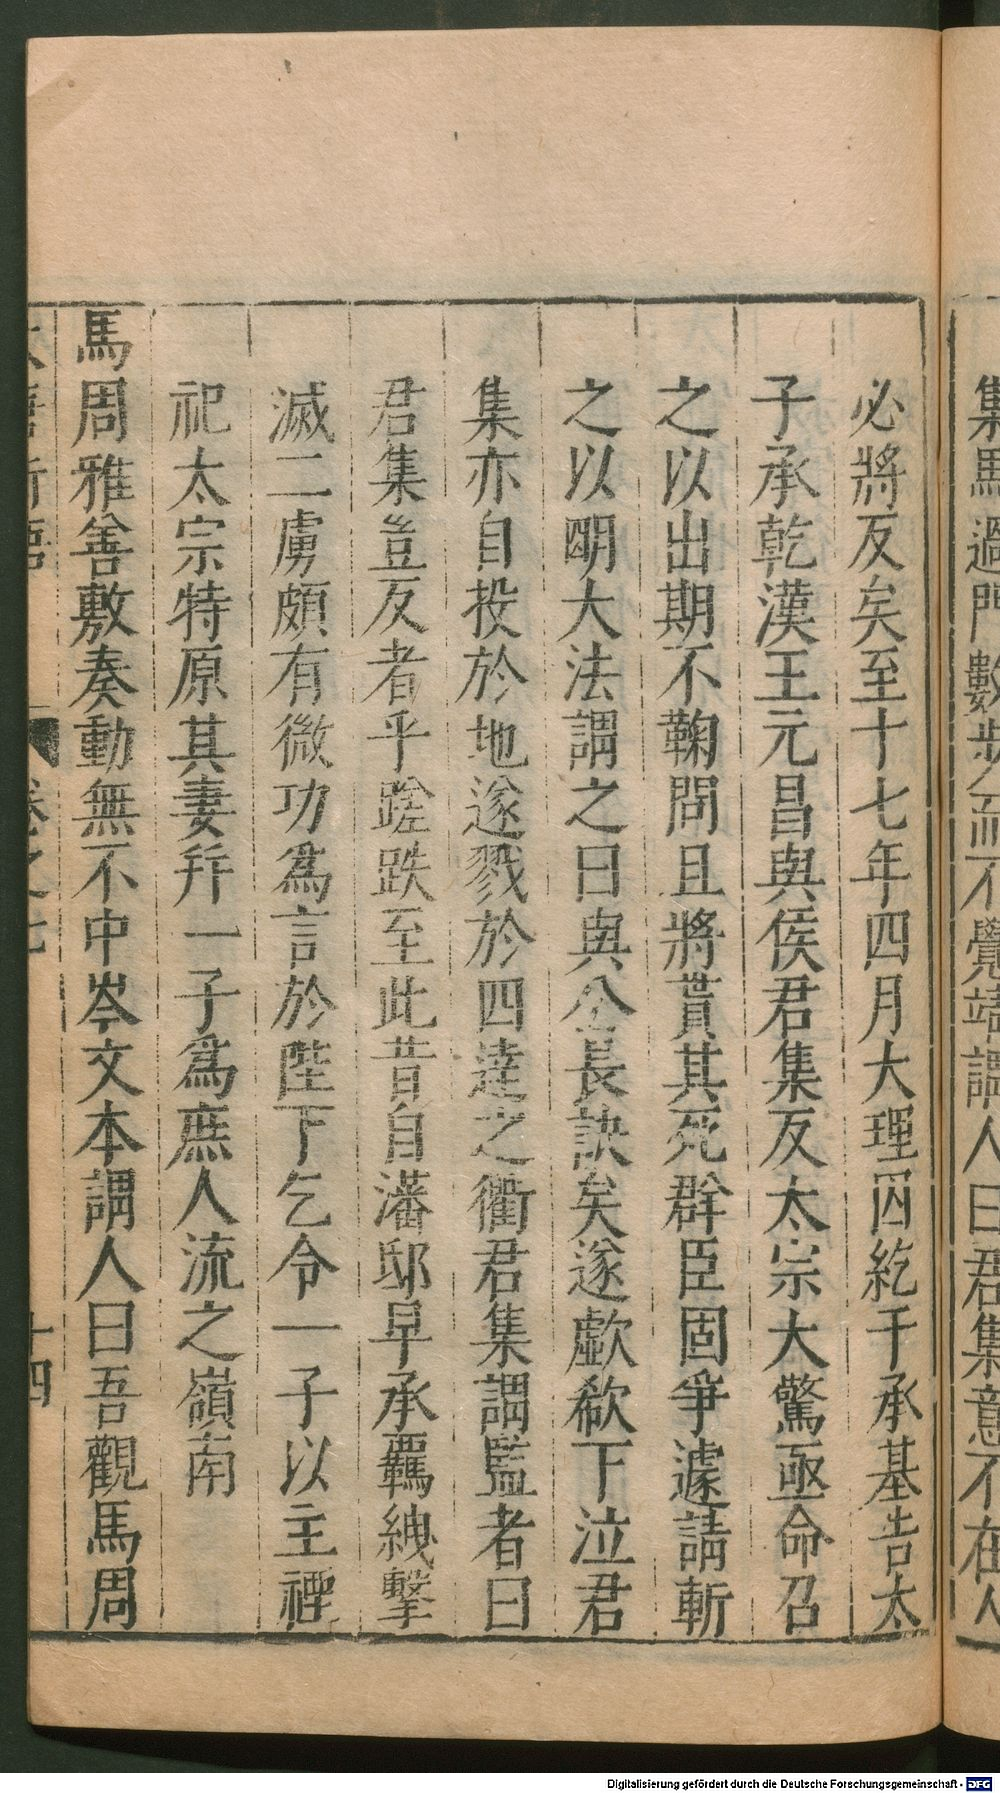 集馬過門數步而不覺靖謂人曰君集意不在人
必將反矣至十七年四月大理囚紇干承基告太
子承乾漢王元昌與侯君集反太宗大驚亟命召
之以出期不鞠問且將貰其死群臣固爭遽請斬
之以明大法謂之曰與公長訣矣遂歔欷下泣君
集亦自投於地遂戮於四達之衢君集謂監者曰
君集豈反者乎蹉跌至此昔自潘邸早承羈絏擊
滅二虜頗有微功為言於陛下乞令一子以主禋
祀太宗特原其妻并一子為庶人流之嶺南
馬周雅善敷奏動無不中岑文本謂人曰吾觀馬周
卷之七 十四
Digitalisierung gefördert durch die Deutsche Forschungsgemeinschaft - DFG